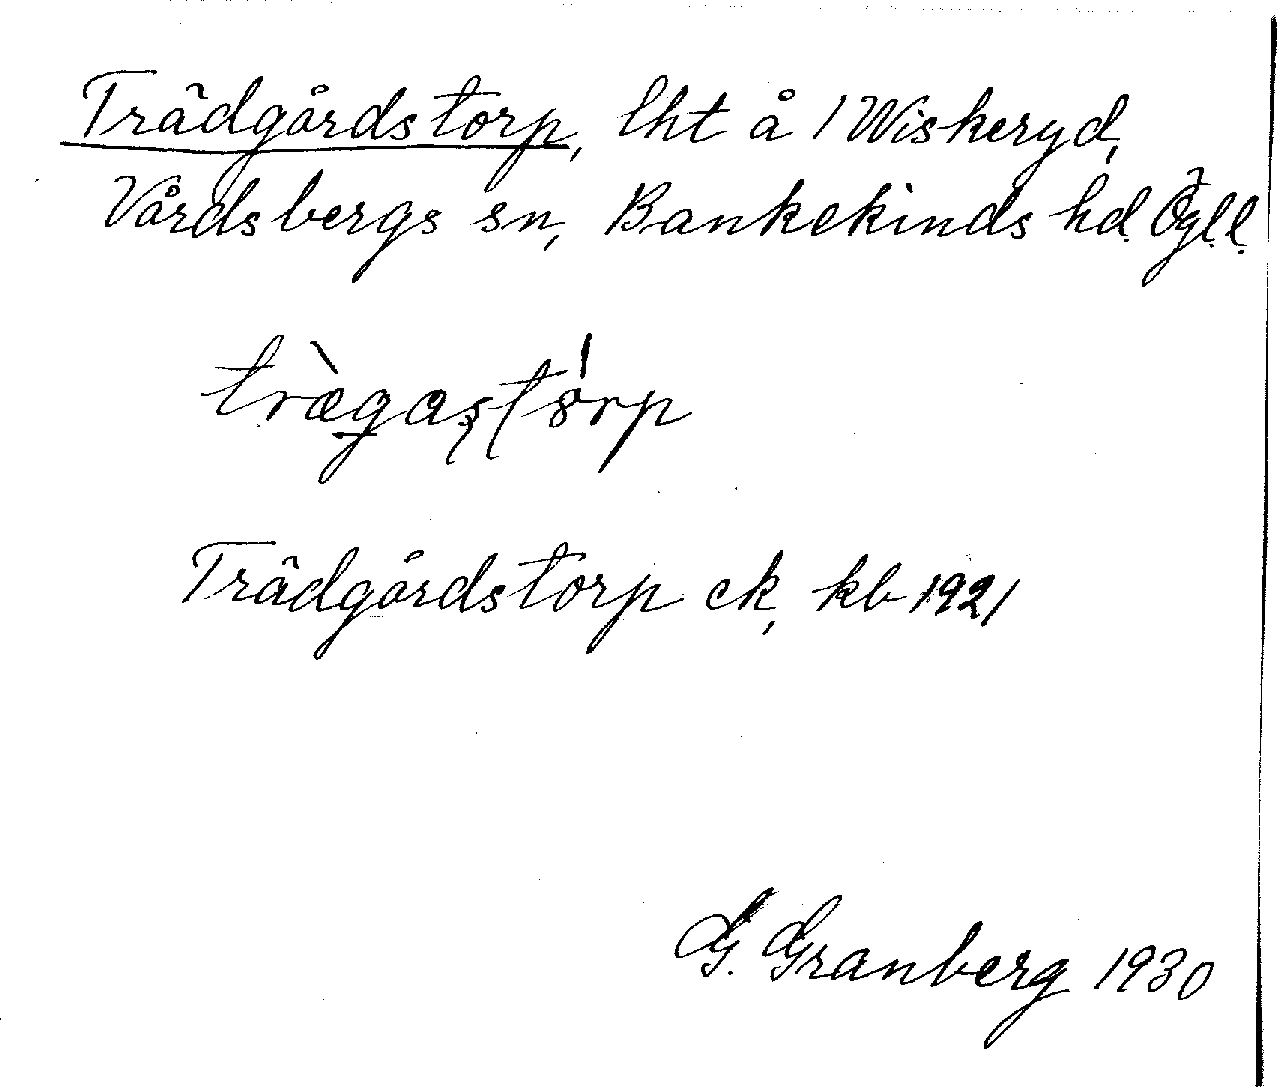 Trädgårdstorp, lht å 1 Wiskeryd,
Vårdsbergs sn, Bankekinds hd. Ögl.l.
Trädgårdstorp ek, kb 1921
G. Granberg 1930